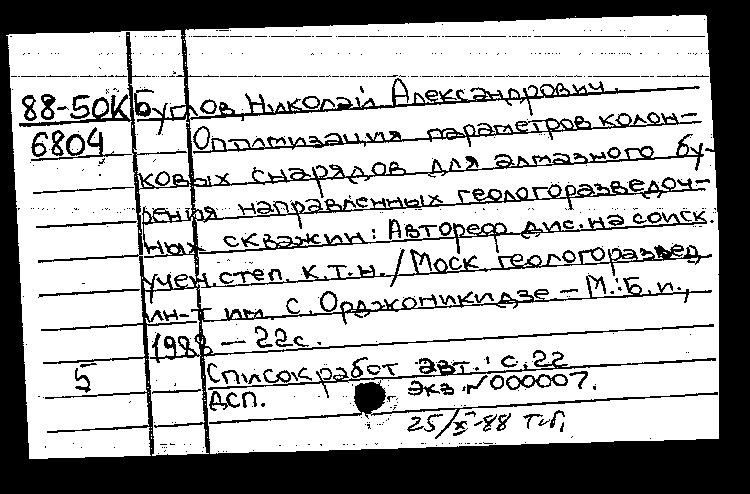 88-50К Буглов, Николай Александрович.
6804 Оптимизация параметров колон=
ковых снарядов для алмазного бу-
рения направленных геологоразведоч=
ных скважин: Автореф. дис. на соиск.
учен. степ. к.т.н. / Моск. геологоразвед.
ин-т им. С. Орджоникидзе – М.: Б.и.,
1988 – 22с.
5 Список работ авт.: с. 22
ДСП. Экз. № 000007.
25/XI-88